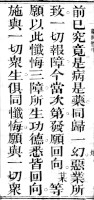 前已究竟是病是藥同歸一幻惡業所
致一切報障今當次第發願回向某等
願以此懺悔三障所生功德悉皆回向
施與一切衆生俱同懺悔願與一切衆